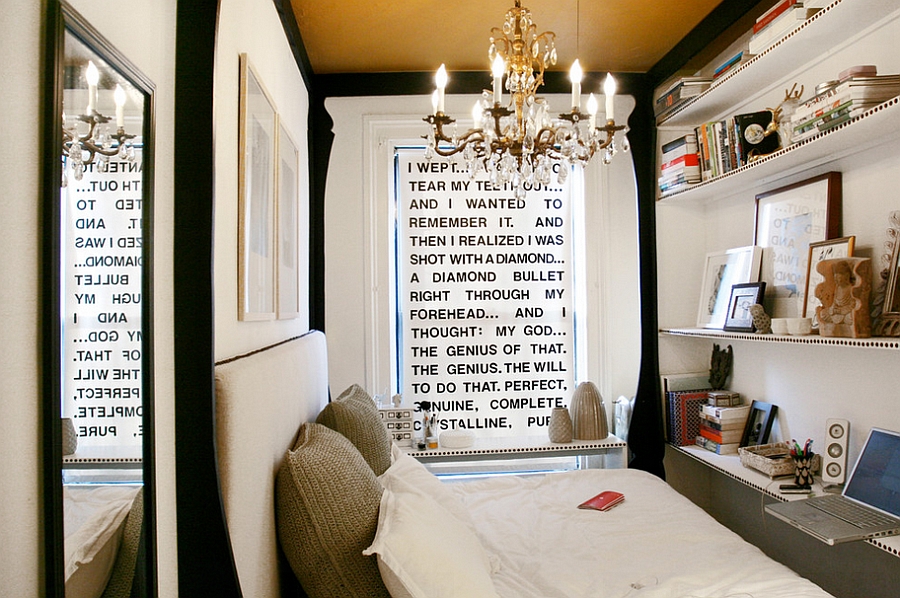 I WEPT...
TEAR MY TEETH OUT...
AND I WANTED TO
REMEMBER IT. AND
THEN I REALIZED I WAS
SHOT WITH A DIAMOND...
A DIAMOND BULLET
RIGHT THROUGH MY
FOREHEAD... AND I
THOUGHT: MY GOD...
THE GENIUS OF THAT.
THE GENIUS. THE WILL
TO DO THAT. PERFECT,
GENUINE, COMPLETE,
CRYSTALLINE, PURE